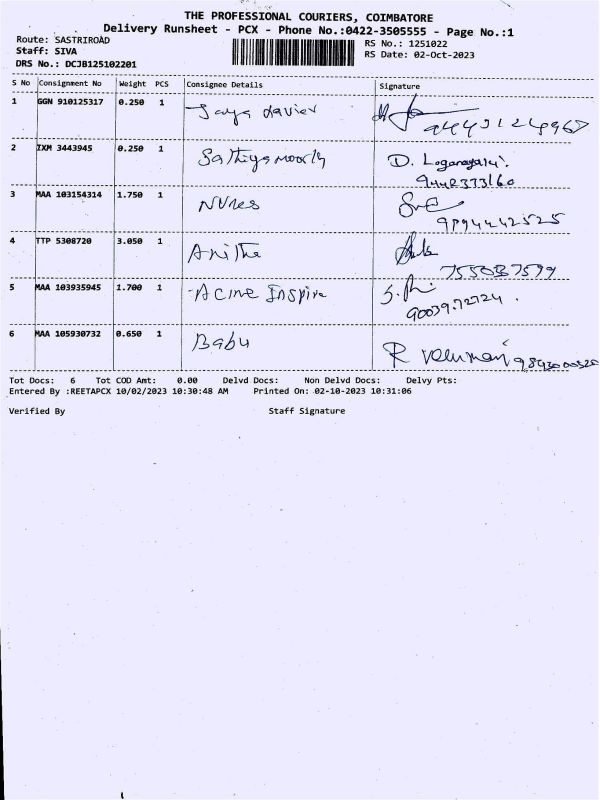 THE PROFESSIONAL COURIERS, COIMBATORE
Delivery Runsheet - PCX - Phone No.:0422-3505555 - Page No.:1
Route: SASTRIROAD
RS No.: 1251022
Staff: SIVA
RS Date: 02-Oct-2023
DRS No.: DCJB125102201
S No Consignment No Weight PCS Consignee Details Signature
1 GGN 910125317 0.250 1 Jaya davier
2 IXM 3443945 0.250 1 Sathiyamoorthy D. Loganayaki
9442373160
3 MAA 103154314 1.750 1 NVNes
9894442525
4 TTP 5308720 3.050 1 Anitha
5 MAA 103935945 1.700 1 Acme Inspire
9003972724
6 MAA 105930732 0.650 1 Babu
R Velumani
Tot Docs: 6 Tot COD Amt: 0.00 Delvd Docs: Non Delvd Docs: Delvy Pts:
Entered By :REETAPCX 10/02/2023 10:30:48 AM Printed On: 02-10-2023 10:31:06
Verified By Staff Signature